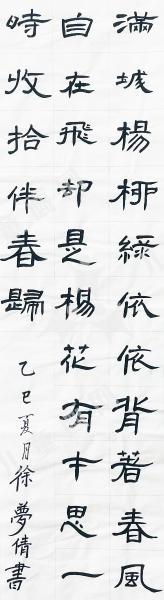 滿城楊柳綠依依背著春風
自在飛却是楊花有本思一
時收拾伴春歸
乙巳夏月徐夢倩書